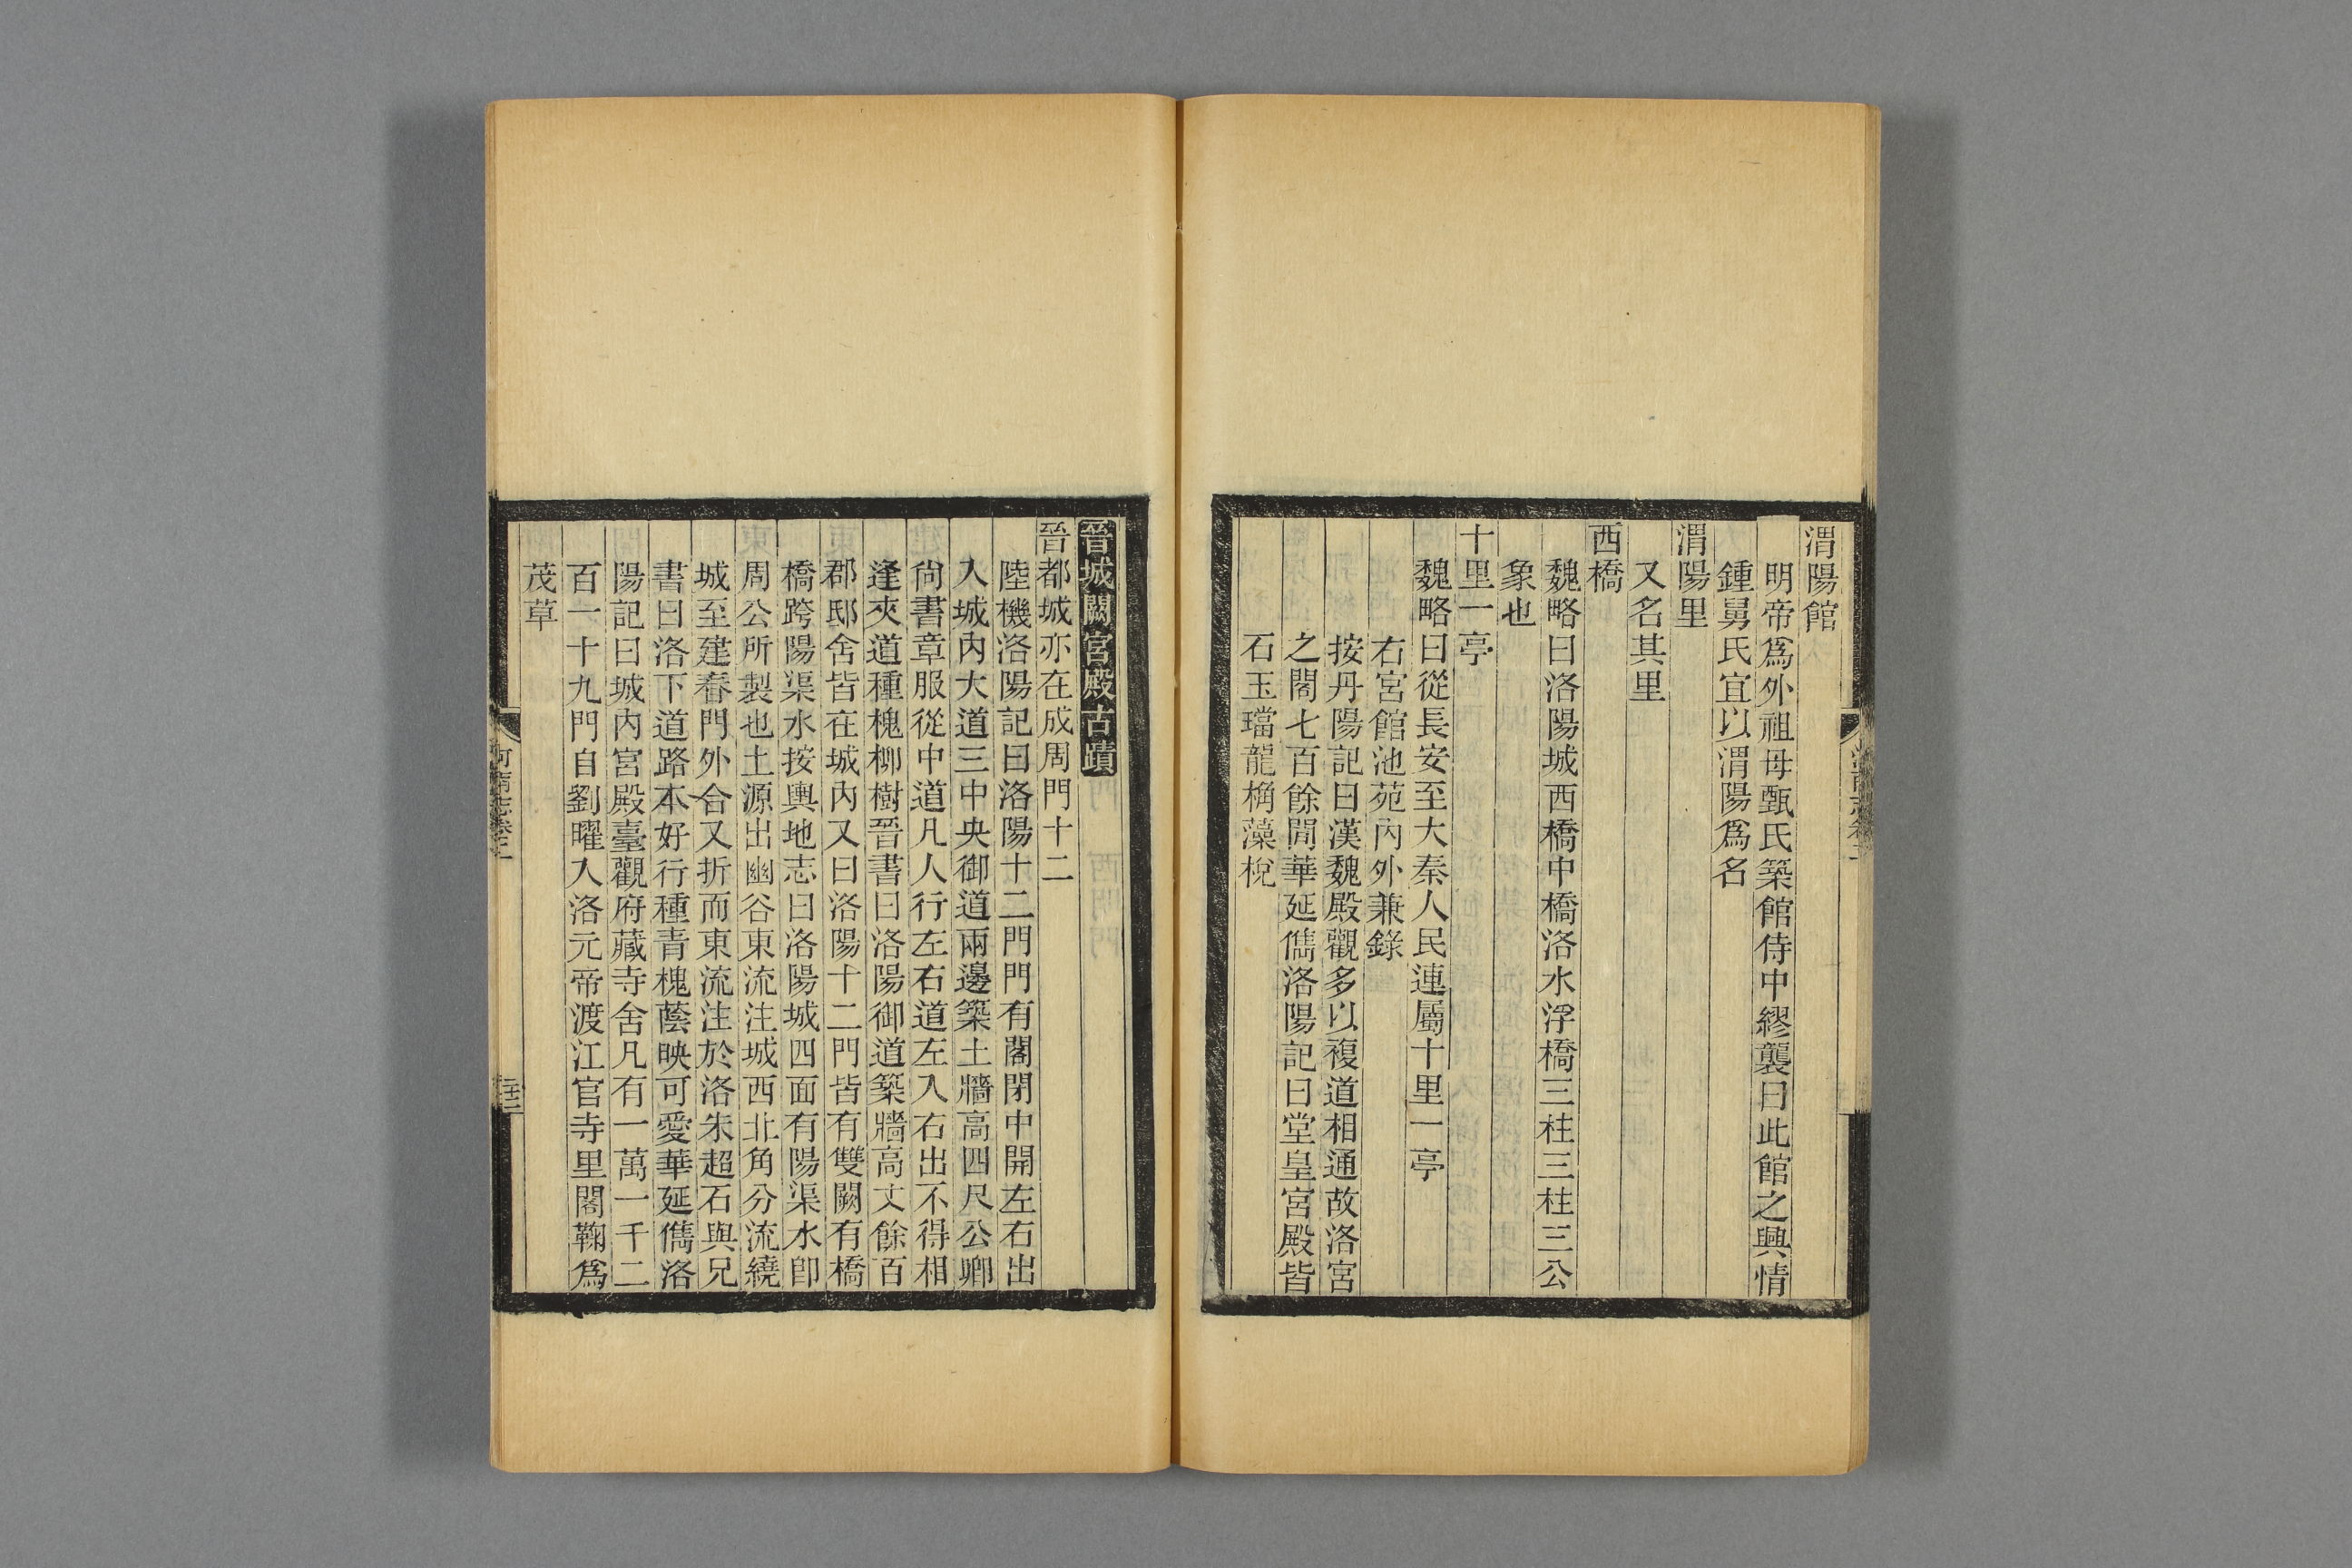 渭陽館
明帝爲外祖母甄氏築館侍中繆襲曰此館之興情
鍾舅氏宜以渭陽爲名
渭陽里
又名其里
西橋
魏略曰洛陽城西橋中橋洛水浮橋三柱三柱三公
象也
十里一亭
魏略曰從長安至大秦人民連屬十里一亭
右宮館池苑內外兼錄
按丹陽記曰漢魏殿觀多以複道相通故洛宮
之閣七百餘間華延儁洛陽記曰堂皇宮殿皆
石玉璫龍桷藻梲
晉城闕宮殿古蹟
晉都城亦在成周門十二
陸機洛陽記曰洛陽十二門門有閣閉中開左右出
入城內大道三中央御道兩邊築土牆高四尺公卿
尙書章服從中道凡人行左右道左入右出不得相
逢夾道種槐柳樹晉書曰洛陽御道築牆高丈餘百
郡邸舍皆在城內又曰洛陽十二門皆有雙闕有橋
橋跨陽渠水按輿地志曰洛陽城四面有陽渠水卽
周公所製也土源出幽谷東流注城西北角分流繞
城至建春門外合又折而東流注於洛朱超石與兄
書曰洛下道路本好行種青槐蔭映可愛華延儁洛
陽記曰城內宮殿臺觀府藏寺舍凡有一萬一千二
百一十九門自劉曜入洛元帝渡江官寺里閣鞠爲
茂草
河南志卷二